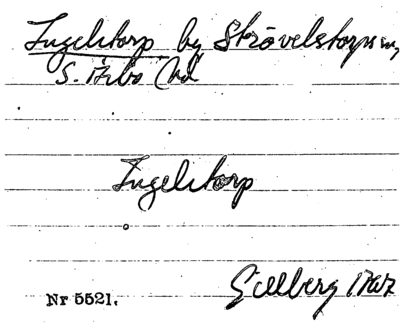 Ingelstorp by Strövelstorps sn,
S. Åsbo hd
Ingelstorp
Gillberg 1767
Nr 5521.